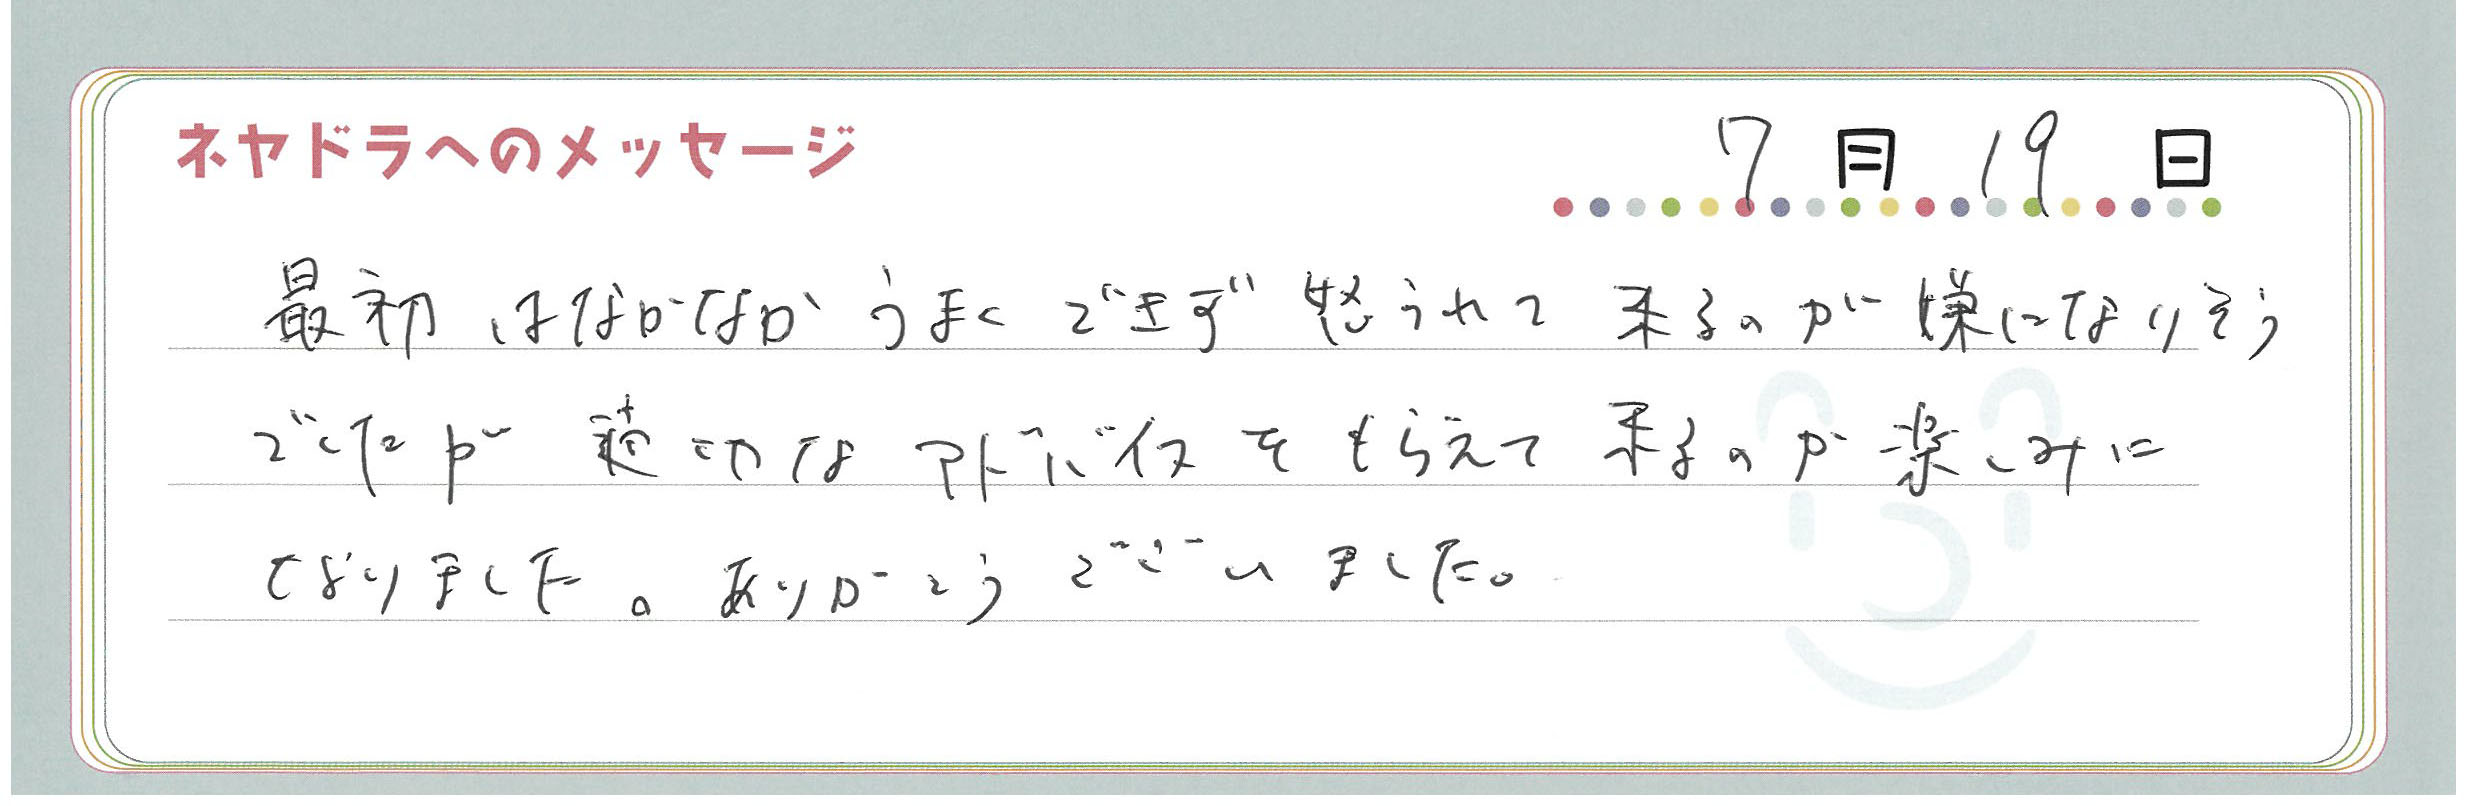 ネヤドラへのメッセージ
7月19日
最初はなかなかうまくできず怒られて来るのが嫌になりそう
でしたが適切なアドバイスをもらえて来るのが楽しみに
なりました。ありがとうございました。